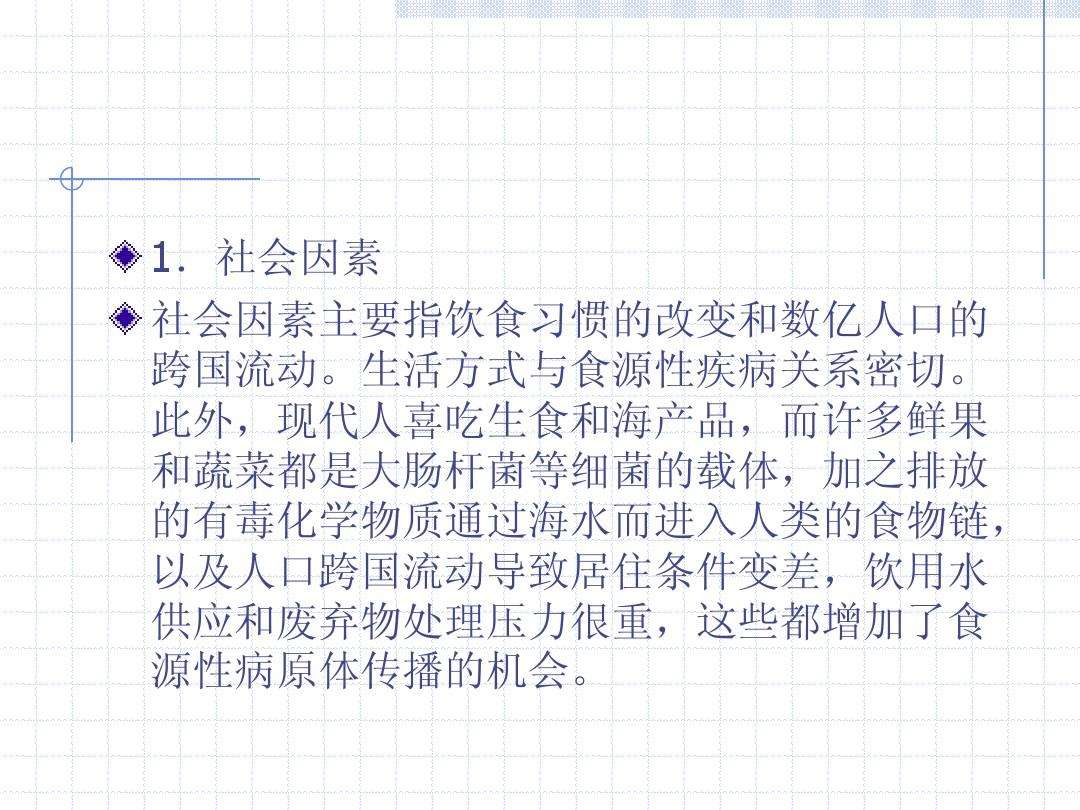 1．社会因素
社会因素主要指饮食习惯的改变和数亿人口的
跨国流动。生活方式与食源性疾病关系密切。
此外，现代人喜吃生食和海产品，而许多鲜果
和蔬菜都是大肠杆菌等细菌的载体，加之排放
的有毒化学物质通过海水而进入人类的食物链，
以及人口跨国流动导致居住条件变差，饮用水
供应和废弃物处理压力很重，这些都增加了食
源性病原体传播的机会。